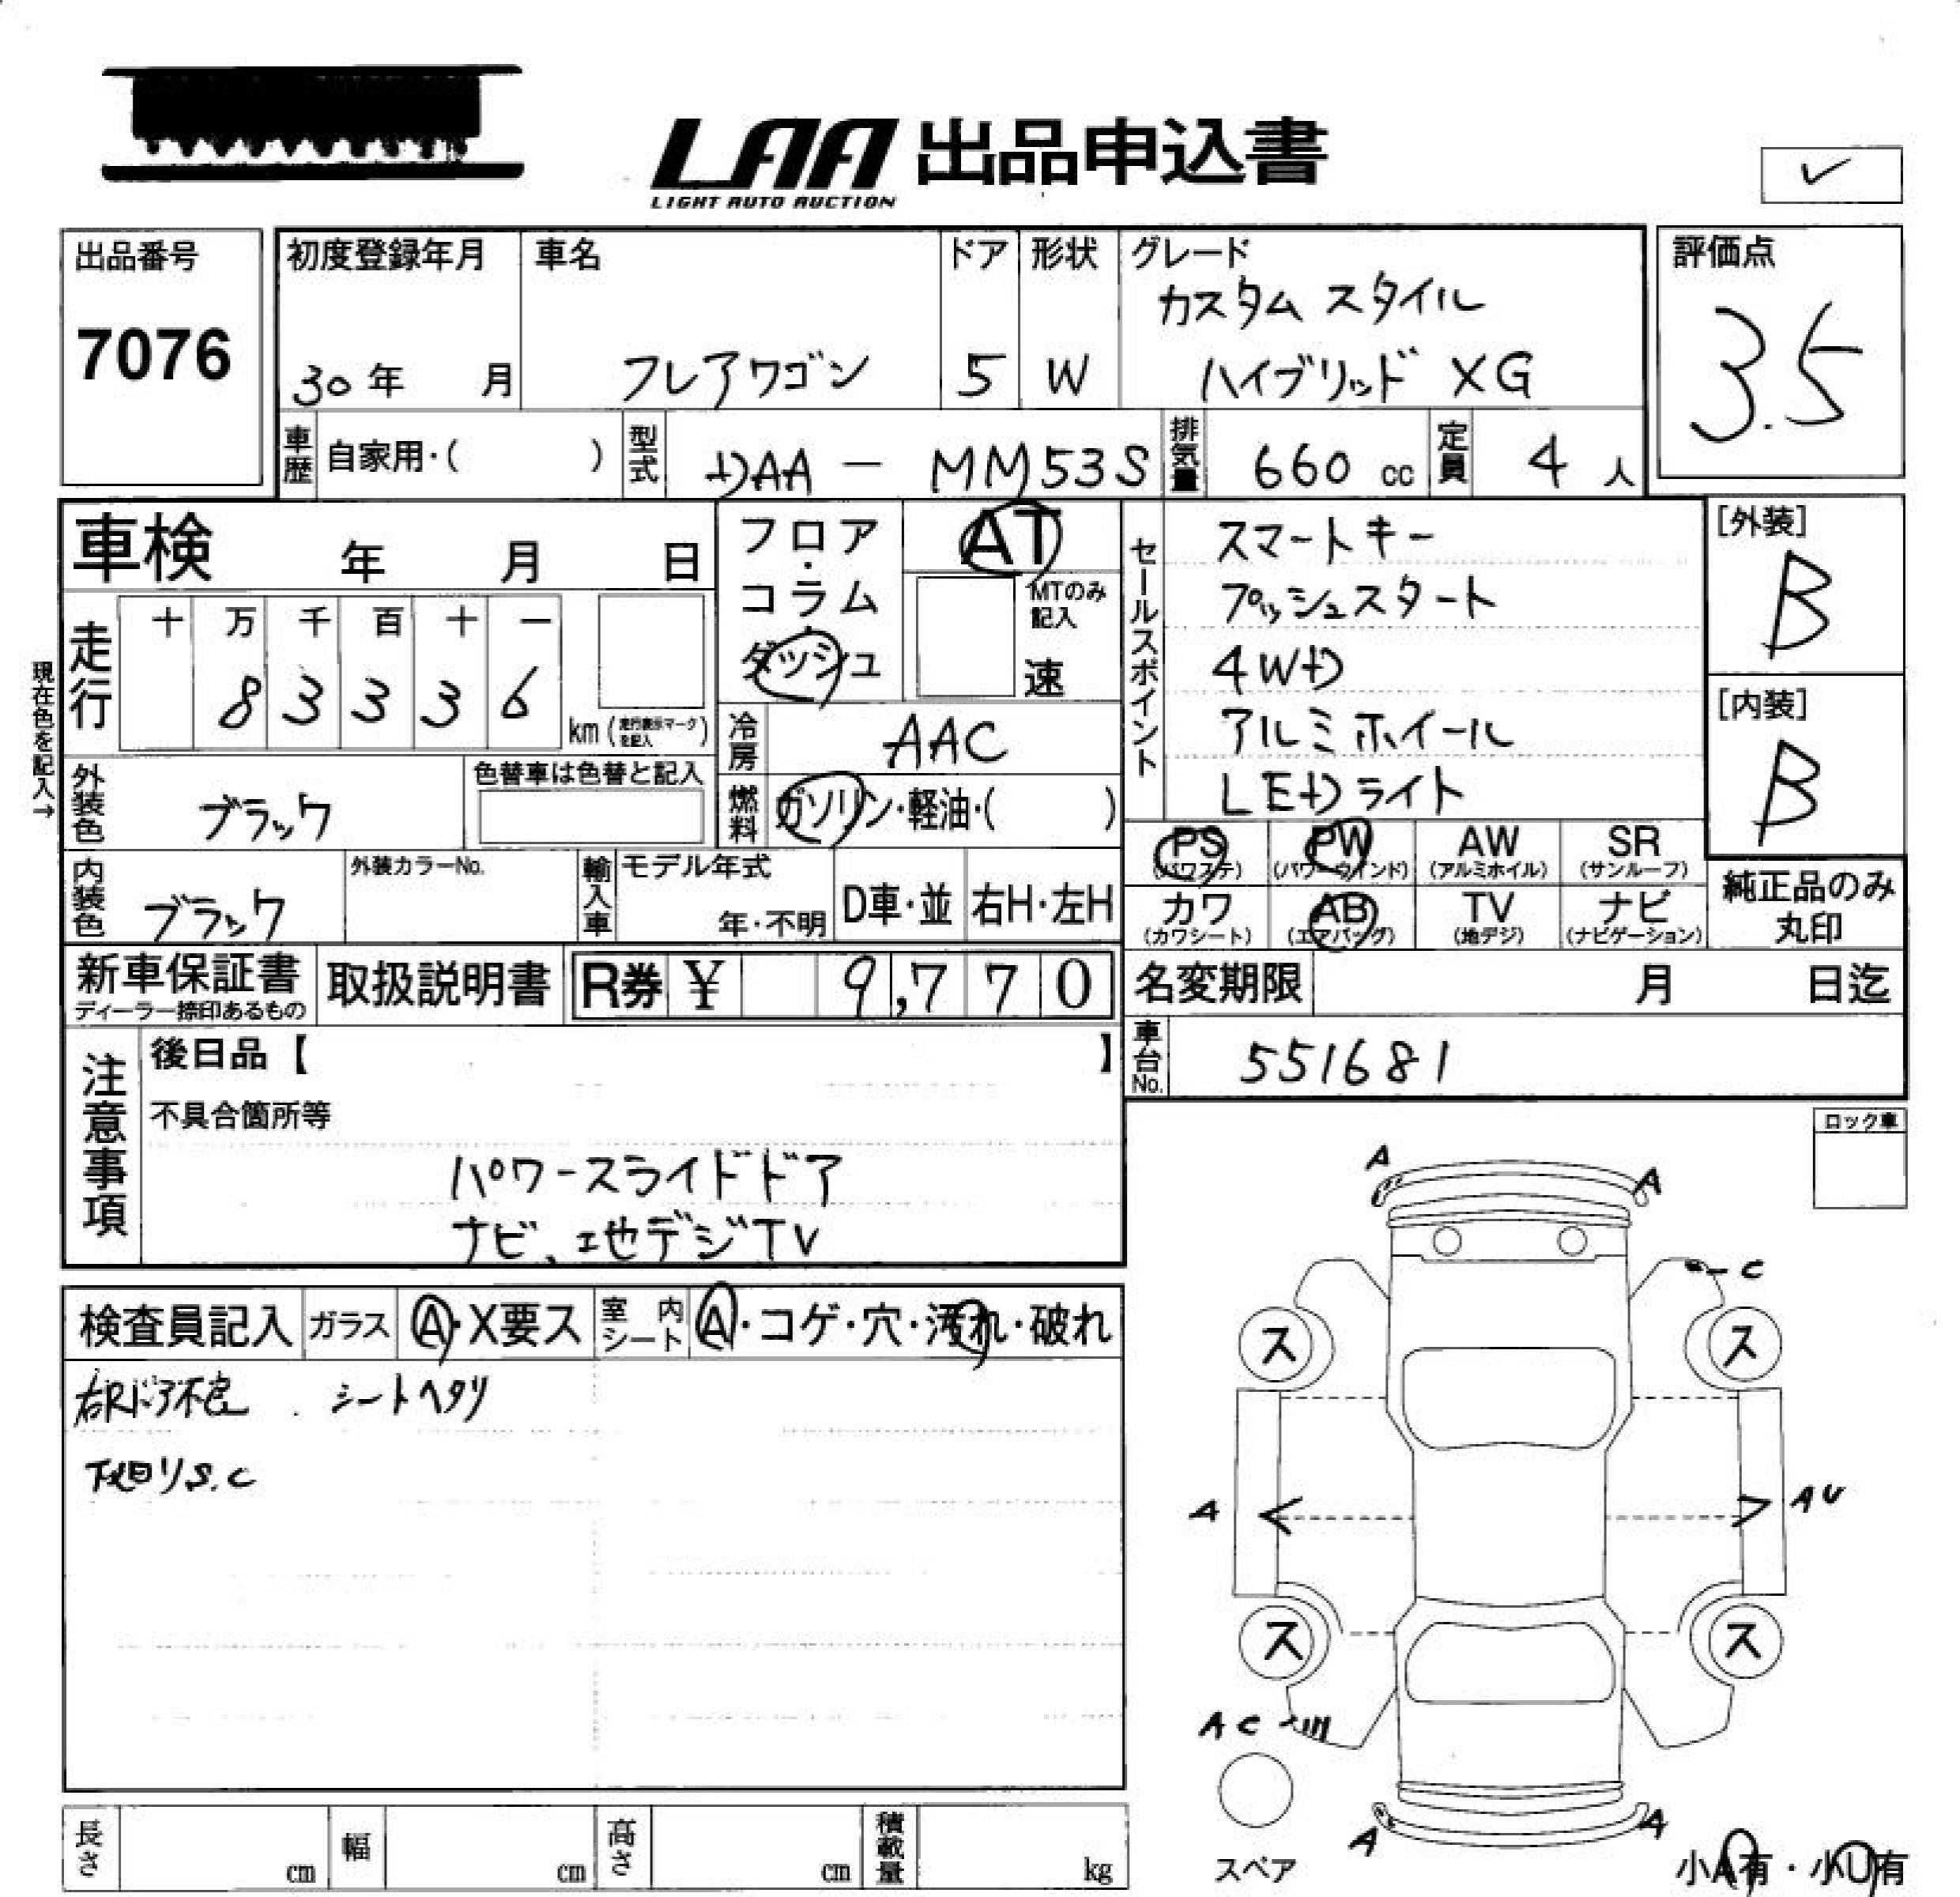 LAA 出品申込書
LIGHT AUTO AUCTION
✓
出品番号
7076
初度登録年月
30年 月
車名
フレアワゴン
ドア
5
形状
W
グレード
カスタム スタイル
ハイブリッド XG
評価点
3.5
車歴 自家用・( )
型式 DAA - MM53S
排気量 660 cc
定員 4 人
車検 年 月 日
フロア・コラム・ダッシュ
AT
MTのみ記入
速
セールスポイント
スマートキー
プッシュスタート
4WD
アルミホイール
LEDライト
[外装]
B
[内装]
B
現在色を記入→
走行 十 万 千 百 十 一
8 3 3 3 6
km (走行表示マークを記入)
冷房 AAC
外装色 ブラック
色替車は色替と記入
燃料 ガソリン・軽油・( )
内装色 ブラック
外装カラーNo.
輸入車 モデル年式
年・不明
D車・並
右H・左H
PS (パワステ)
PW (パワーウインド)
AW (アルミホイル)
SR (サンルーフ)
カワ (カワシート)
AB (エアバッグ)
TV (地デジ)
ナビ (ナビゲーション)
純正品のみ
丸印
新車保証書
ディーラー捺印あるもの
取扱説明書
R券 ¥ 9,770
名変期限 月 日迄
車台No. 551681
注意事項
後日品【 】
不具合箇所等
パワースライドドア
ナビ、地デジTV
ロック車
検査員記入
ガラス A・X要ス
室内シート A・コゲ・穴・汚れ・破れ
右Rドア不良 シートヘタリ
下廻りS.C
A
A
C
ス
ス
A
AU
ス
ス
AC
A
A
スペア
小A有・小U有
長さ cm
幅 cm
高さ cm
積載量 kg